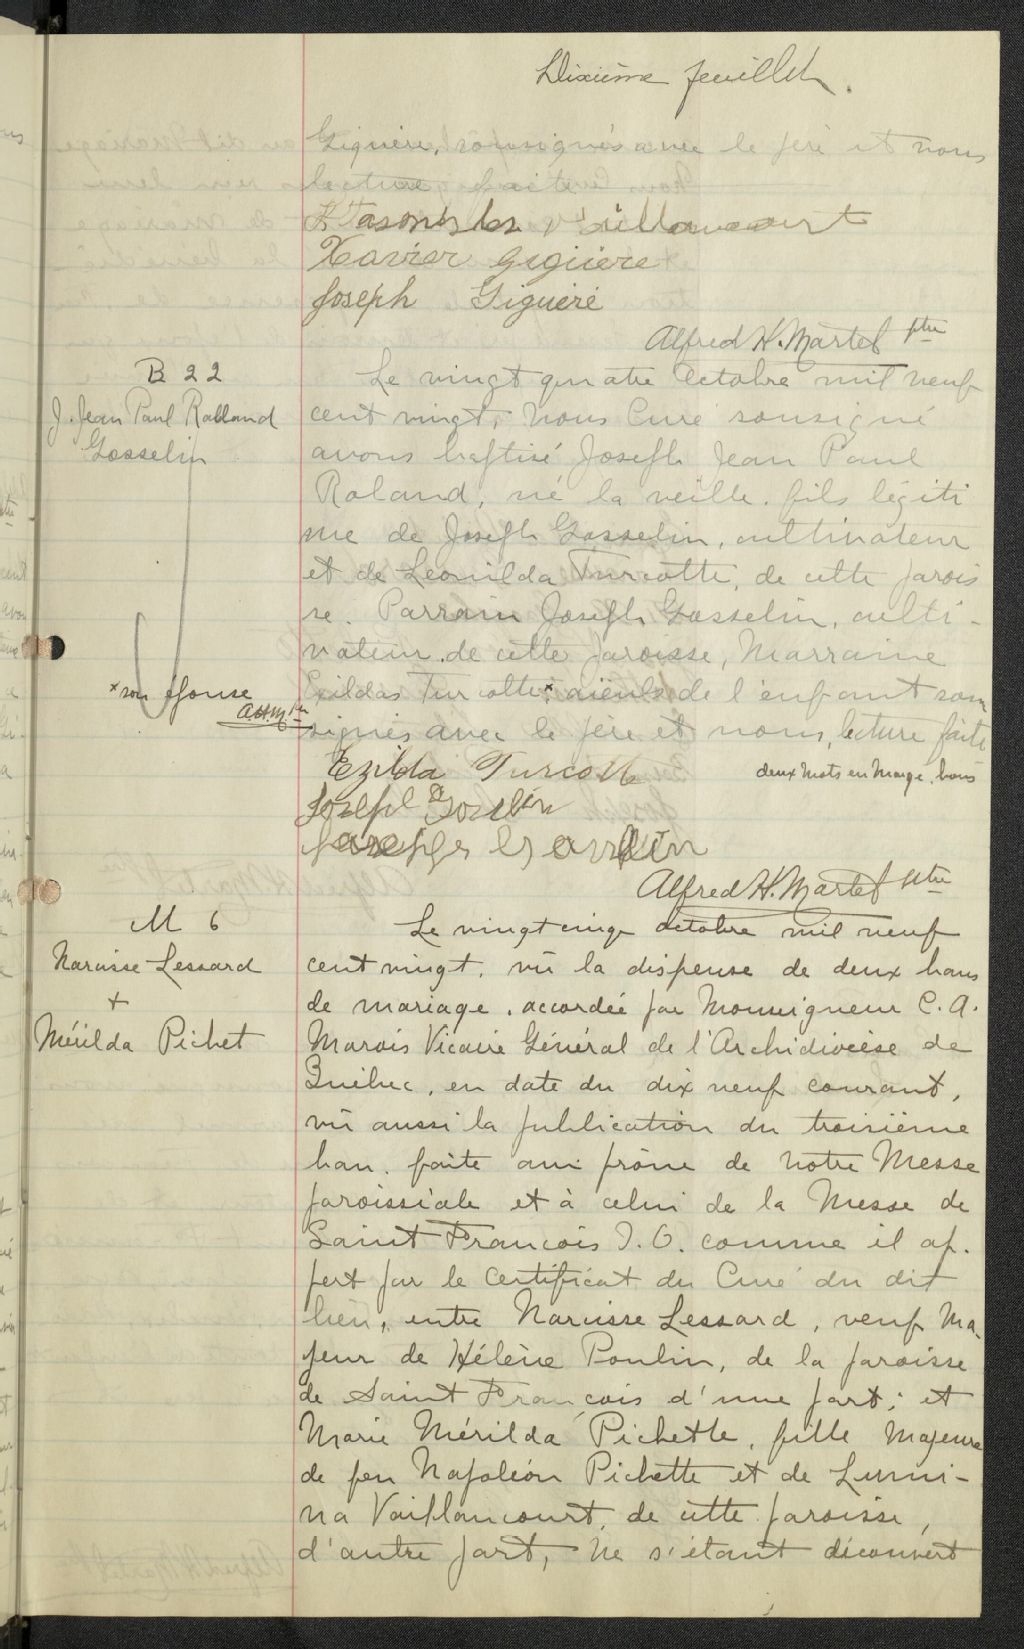 Dixième feuillet.
Giguère, soussignés avec le père et nous
lecture faite
Vaillancourt
Xavier Giguere
Joseph Giguère
Alfred H. Martel ptre
B 22
J. Jean Paul Rolland
Gosselin
Le vingt quatre Octobre mil neuf
cent vingt, Nous Curé soussigné
avons baptisé Joseph Jean Paul
Roland, né la veille. fils légiti
me de Joseph Gosselin, cultivateur
et de Léonilda Turcotte, de cette parois
se. Parrain Joseph Gosselin, culti-
vateur de cette paroisse, Marraine
Exildas Turcotte* aieuls de l'enfant sous
signés avec le père et nous, lecture faite
* son épouse
A.H.M. ptr
Ezilda Turcotte
deux Mots en Marge, bons
Joseph Goselin
Alfred H. Martel ptre
M 6
Narcisse Lessard
+
Mérilda Pichet
Le vingt cinq octobre mil neuf
cent vingt, vû la dispense de deux bans
de mariage, accordée par Monseigneur C. A.
Marois Vicaire Général de l'Archidiocèse de
Québec, en date du dix neuf courant,
vû aussi la publication du troisième
ban, faite au prône de notre Messe
paroissiale et à celui de la Messe de
Saint François I. O. comme il ap.
pert par le Certificat du Curé du dit
lieu, entre Narcisse Lessard, veuf Ma
jeur de Hélène Poulin, de la paroisse
de Saint François d'une part; et
Marie Mérilda Pichette, fille Majeure
de feu Napoléon Pichette et de Lumi-
na Vaillancourt, de cette paroisse,
d'autre part, Ne s'étant découvert